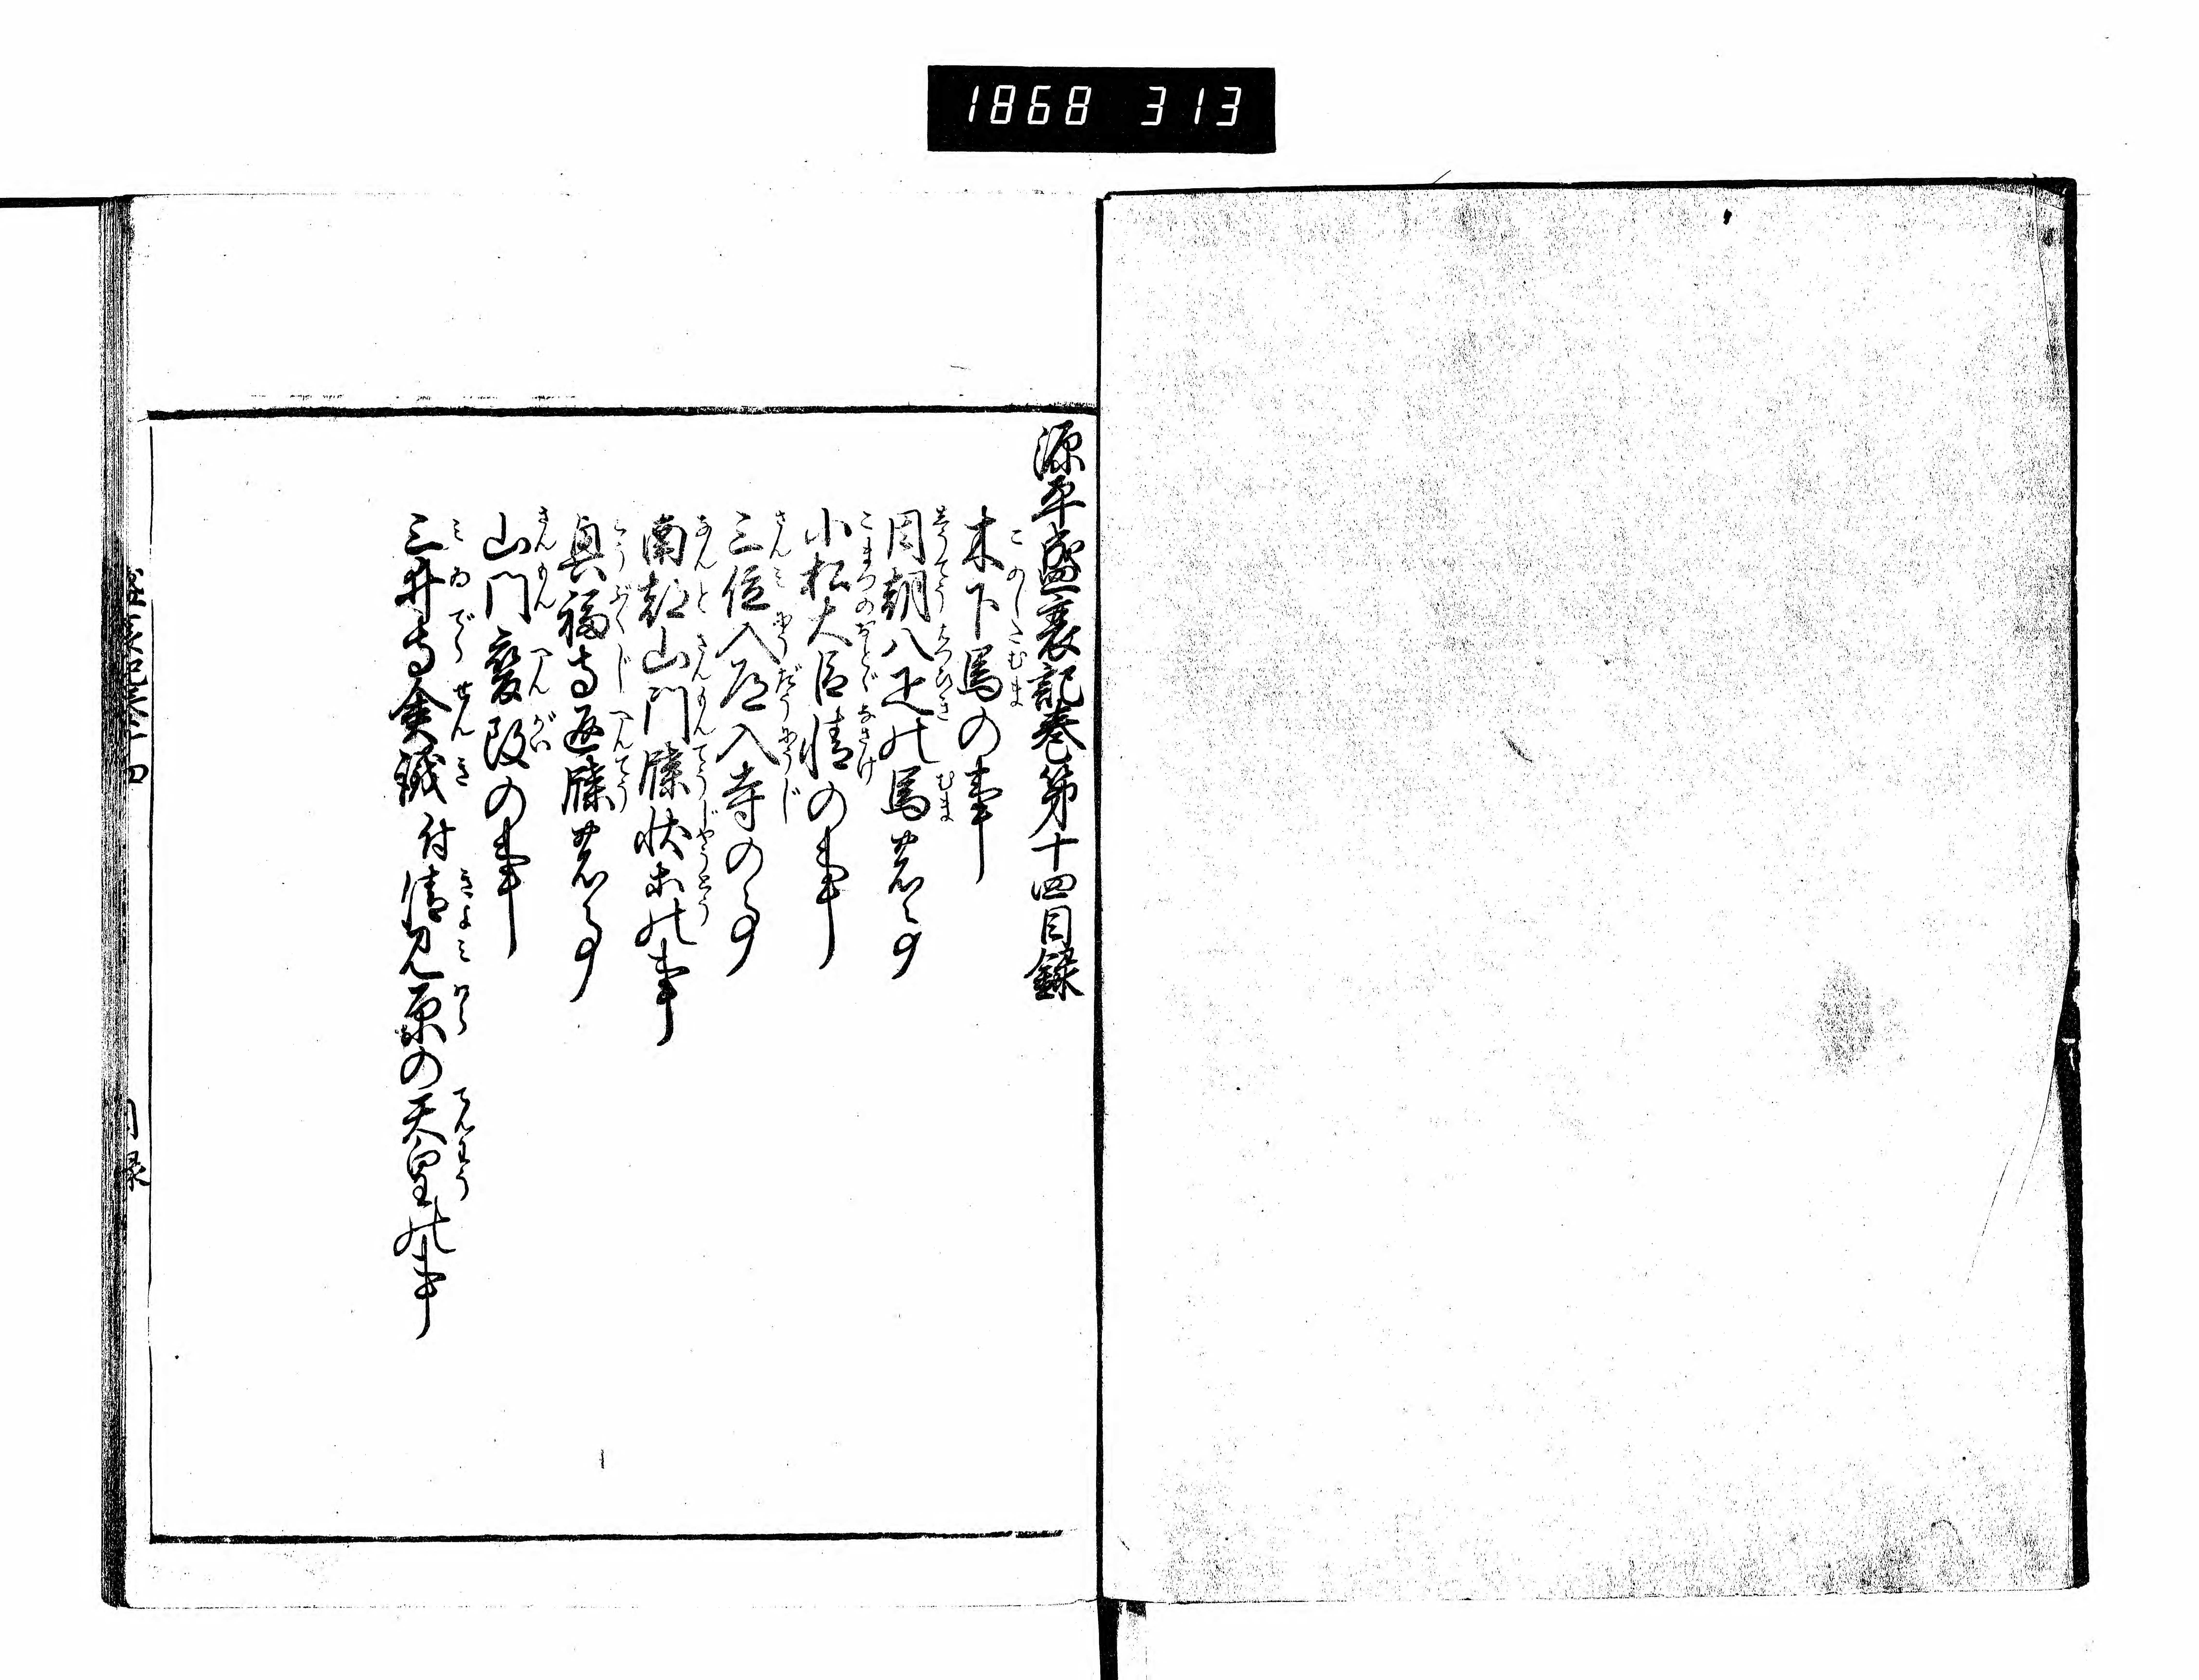 1868 313
源平盛衰記巻第十四目録
木下馬の事
周朝八疋の馬並る事
小松大臣情の事
三位入道入寺の事
南都山門牒状等の事
興福寺返牒並る事
山門変改の事
三井寺僉議付清見原の天皇の事